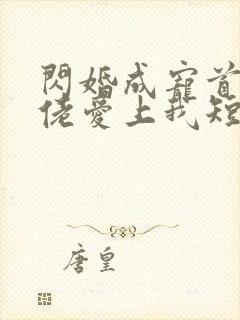 閃婚成寵首
佬愛上我短
唐皇